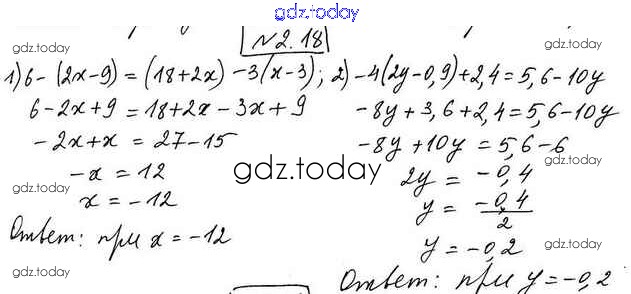 gdz.today
№2.18
1) 6-(2x-9)=(18+2x)-3(x-3);
6-2x+9=18+2x-3x+9
-2x+x=27-15
-x=12
x=-12
Ответ: при x=-12
2) -4(2y-0,9)+2,4=5,6-10y
-8y+3,6+2,4=5,6-10y
-8y+10y=5,6-6
2y=-0,4
y=-0,4/2
y=-0,2
Ответ: при y=-0,2
gdz.today
gdz.today
gdz.today
gdz.today
gdz.today
gdz.today
gdz.today
gdz.today
gdz.today